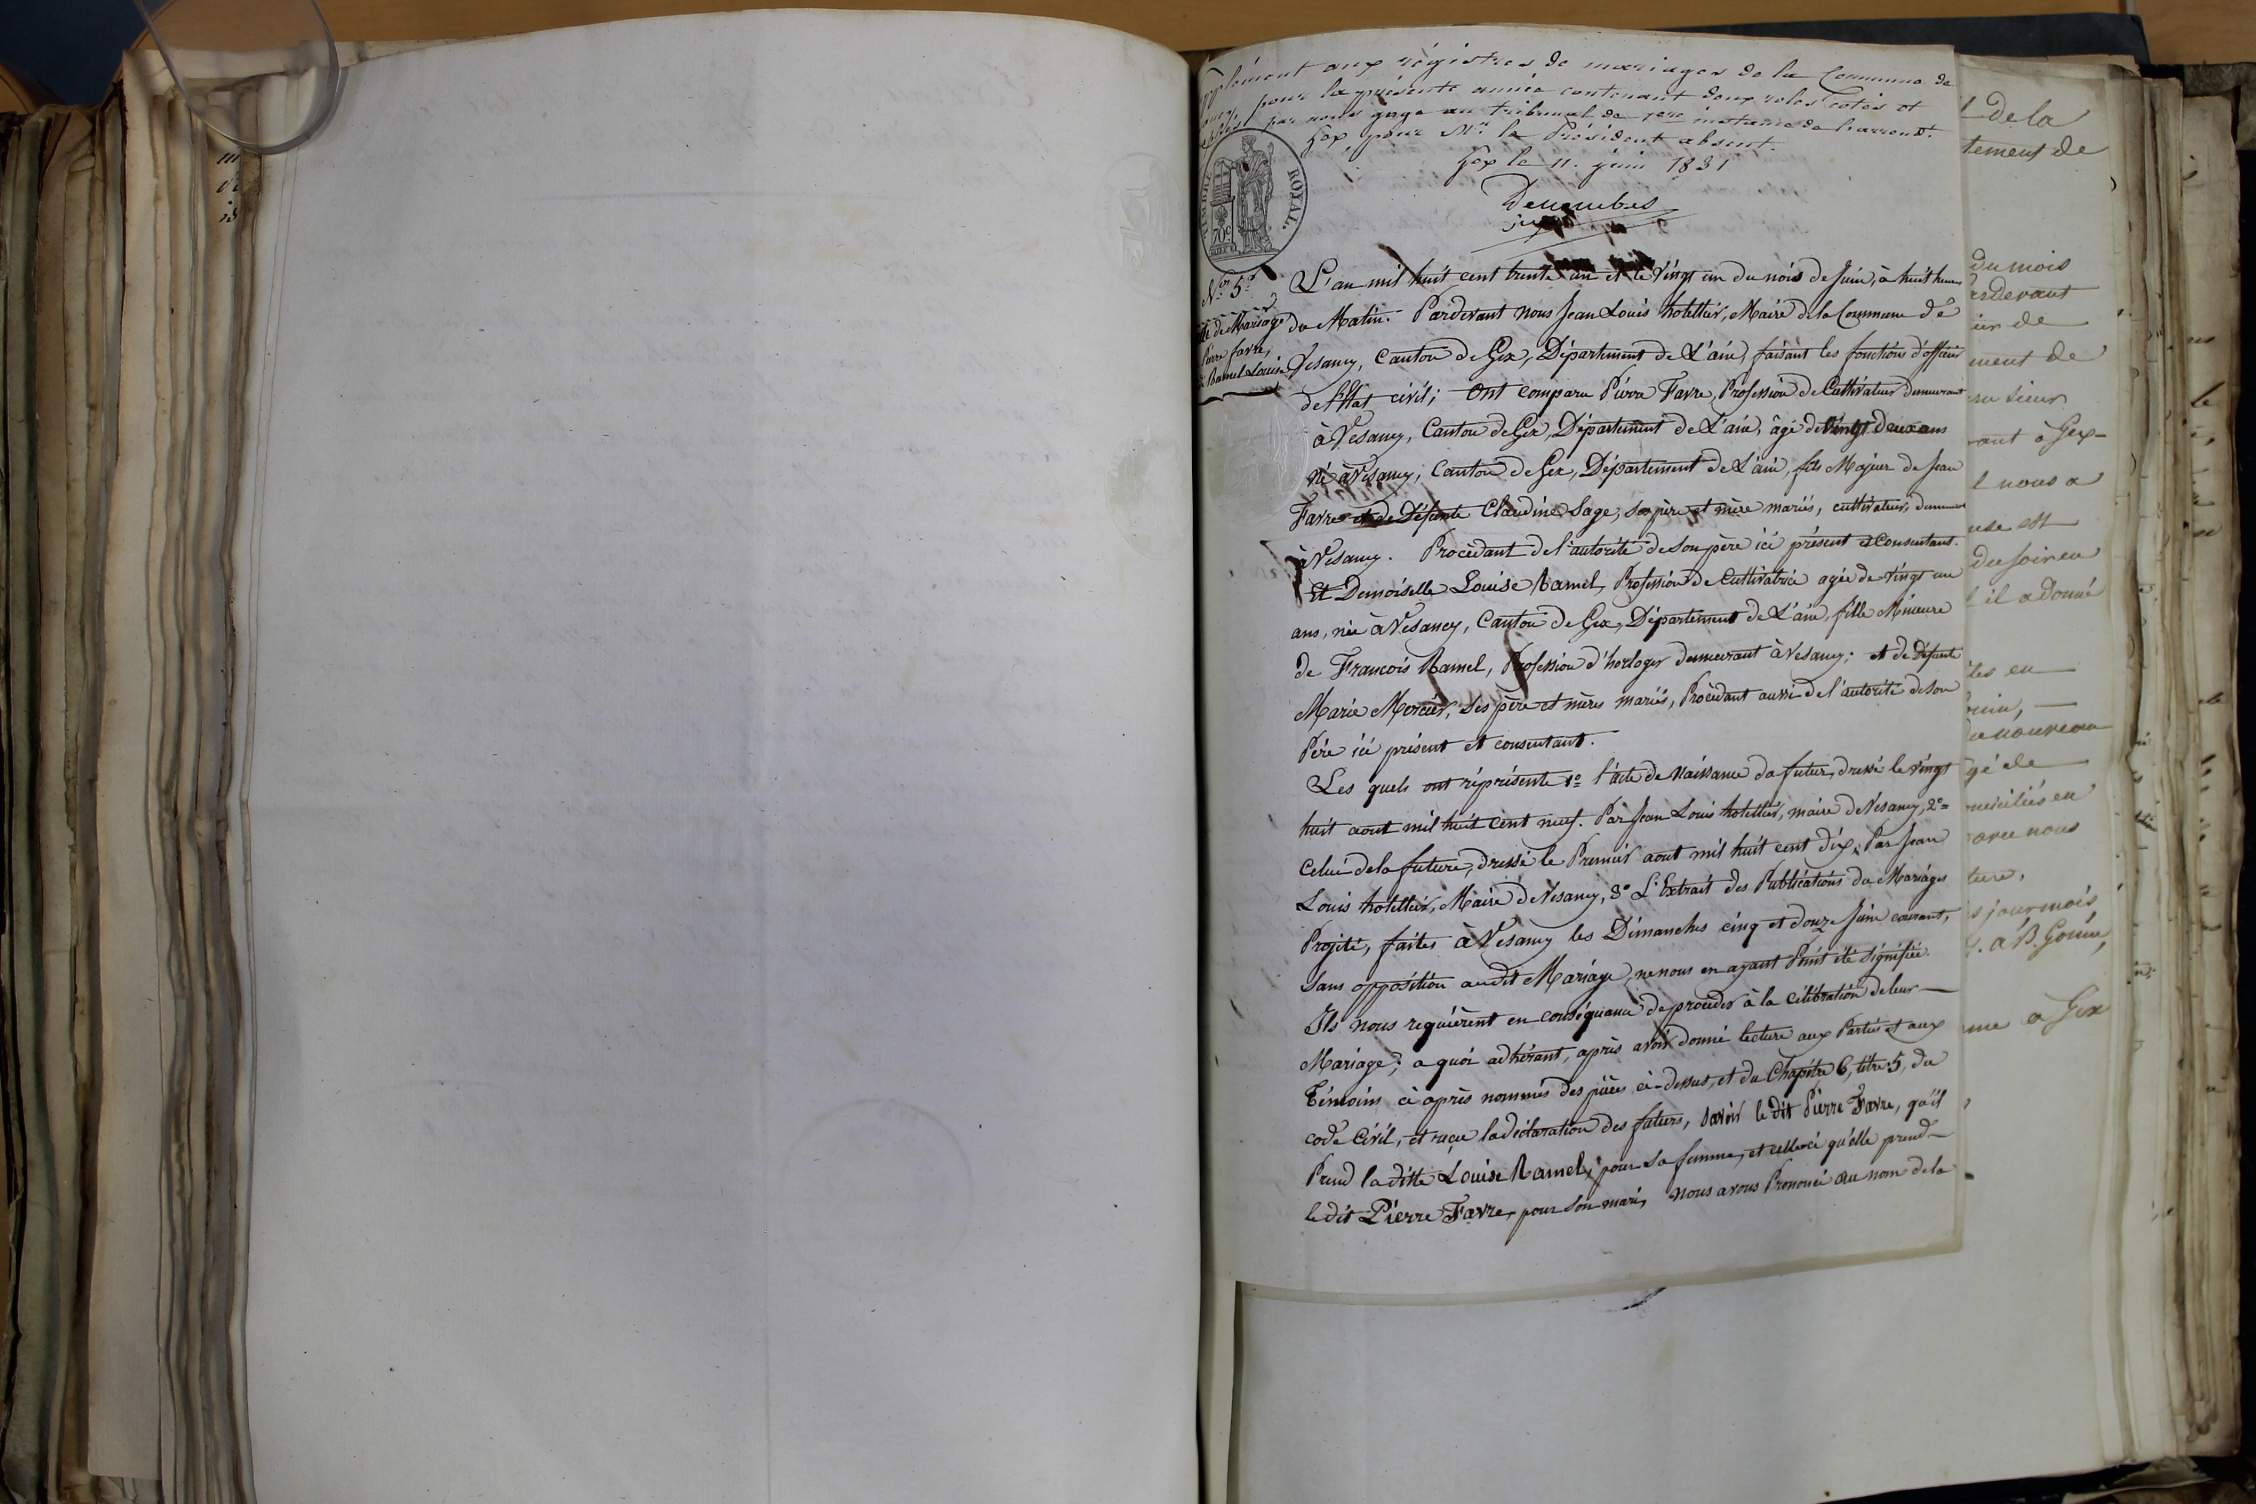 supplément aux régistres de mariages de la Commune de
pour la présente année contenant deux roles cotés et
par nous juge au tribunal de 1ere instance de l'arrondt.
Gex, pour Mr. le Président absent.
Gex le 11. juin 1831
TIMBRE ROYAL.
70c
No. 5.
acte de Mariage
Pierre favre,
& Ramel Louise
L'an mil huit cent trente un et le vingt un du mois de Juin, à huit heures
du Matin. Pardevant nous Jean Louis hotellier, Maire de la Commune de
Vesancy, Canton de Gex, Département de L'ain, faisant les fonctions d'officier
de l'Etat civil; Ont comparu Pierre Favre, Profession de Cultivateur demeurant
à Vesancy, Canton de Gex, Département de L'ain, âgé de vingt deux ans
né à Vesancy, Canton de Gex, Département de L'ain, fils Majeur de Jean
Favre et de Défunte Claudine Sage, ses père et mère mariés, cultivateurs, demeurant
à Vesancy. Procèdant de l'autorité de son père ici présent et Consentant.
Et Demoiselle Louise Ramel, Profession de Cultivatrice agée de vingt un
ans, née à Vesancy, Canton de Gex, Département de L'ain, fille Mineure
de François Ramel, Profession d'horloger demeurant à Vesancy; et de Défunte
Marie Mercier, ses père et mères mariés, Procèdant aussi de l'autorité de son
Père ici présent et consentant.
Les quels ont réprésenté 1o l'acte de Naissance du futur, dressé le vingt
huit aout mil huit cent neuf. Par Jean Louis hotellier, maire de Vesancy, 2o
Celui de la future, dressé le Premier aout mil huit cent dix, Par Jean
Louis hotellier, Maire de Vesancy, 3o L'Extrait des Publications du Mariages
Projeté, faites à Vesancy les Dimanches cinq et douze Juin courant,
sans opposition audit Mariage, ne nous en ayant Point été signifiée.
Ils nous requièrent en conséquence de proceder à la célébration de leur
Mariage; a quoi adhérant, après avoir donné lecture aux Parties et aux
Témoins ci après nommés des pièces ci-dessus, et du Chapitre 6, titre 5, du
code Civil, et reçu la déclaration des futurs, savoir le dit Pierre Favre, qu'il
Prend la ditte Louise Ramel, pour sa femme, et celle-ci qu'elle prend
le dit Pierre Favre, pour son mari, nous avons Prononcé au nom de la
de la
tement de
du mois
ardevant
de
ment de
sieur
ant à Gex
nous a
est
du soir en
il a donné
en
de
avec nous
ture,
jour mois
à Gex